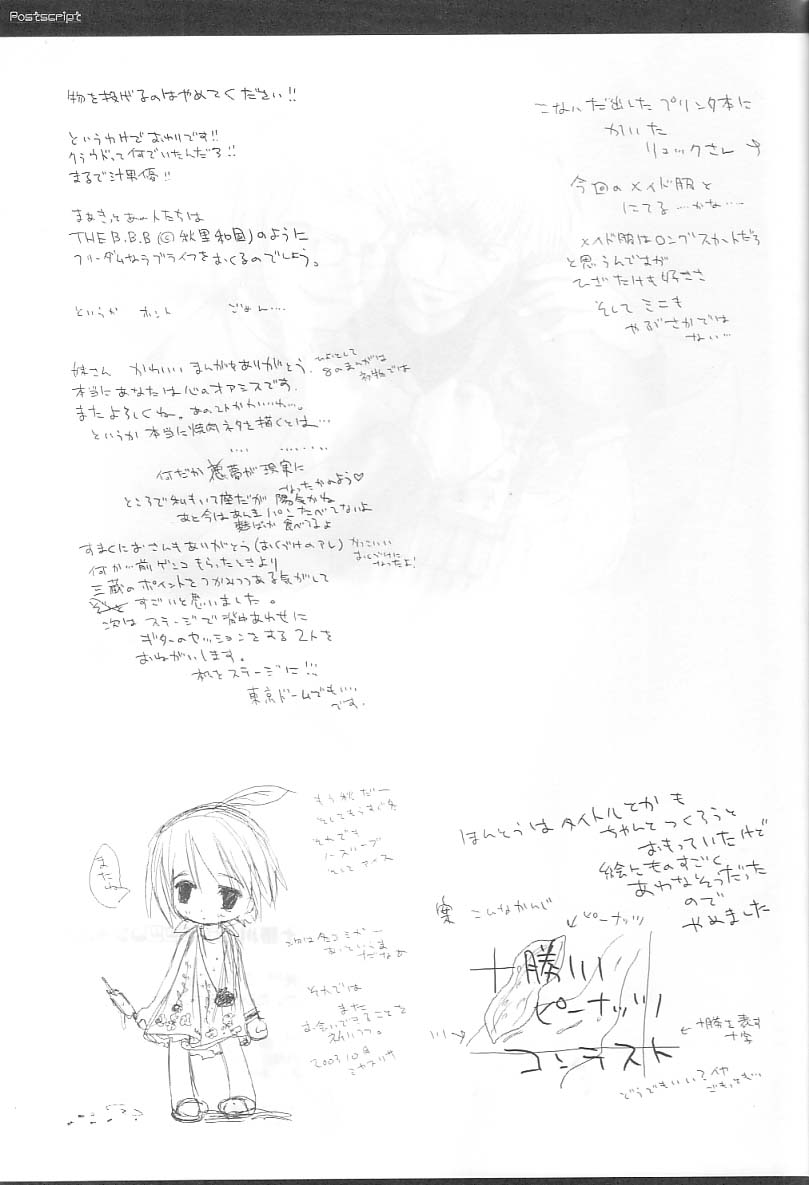 Postscript
物を投げるのはやめてください!!
というわけでおわりです!!
クラウドって何でいたんだろ!!
まるで汁果優!!
まあきっとあの人たちは
THE B.B.B (©秋里和国)のように
フリーダムなラブライフをおくるのでしょう。
というか ホント ごめん…
妹さん かわいい まんがをありがとう。
ひょっとして
8のまんがは
初物では
本当にあなたは心のオアシスです。
またよろしくね。あのひとかわいいわ…。
というか本当に焼肉ネタを描くとは…
何だか悪夢が現実に
なったかのよう♡
ところで私もいて座だが 陽気かね
あと今はあんまパンたべてないよ
麺ばっか食べてるよ
すまくにおさんもありがとう(おくづけのアレ)
かっこいい
おくづけに
なったよ!
何か…前ゲンコもらったときより
三蔵のポイントをつかみつつある気がして
すごいと思いました。
次は ステージで背中あわせに
ギターのセッションをする2人を
おねがいします。
私をステージに!!!
東京ドームでも…
です。
こないだ出したプリンタ本に
かいた
リュックさん
今回のメイド服と
にてる…かな…
メイド服はロングスカートだろ
と思うんですが
ひざたけも好きさ
そしてミニも
やぶさかでは
ない…
またね
もう秋だー
そしてもうすぐ冬
それでも
ノースリーブ
そしてアイス
それでは
また
お会いできることを
2003 10月
ほんとうはタイトルとかも
ちゃんとつくろうと
おもっていたけど
絵とものすごく
あわなそうだった
ので
やめました
案 こんなかんじ
ピーナッツ
十勝川
ピーナッツ
コンテスト
川
十勝を表す
十字
どうでもいい?イヤ
ごもっとも…